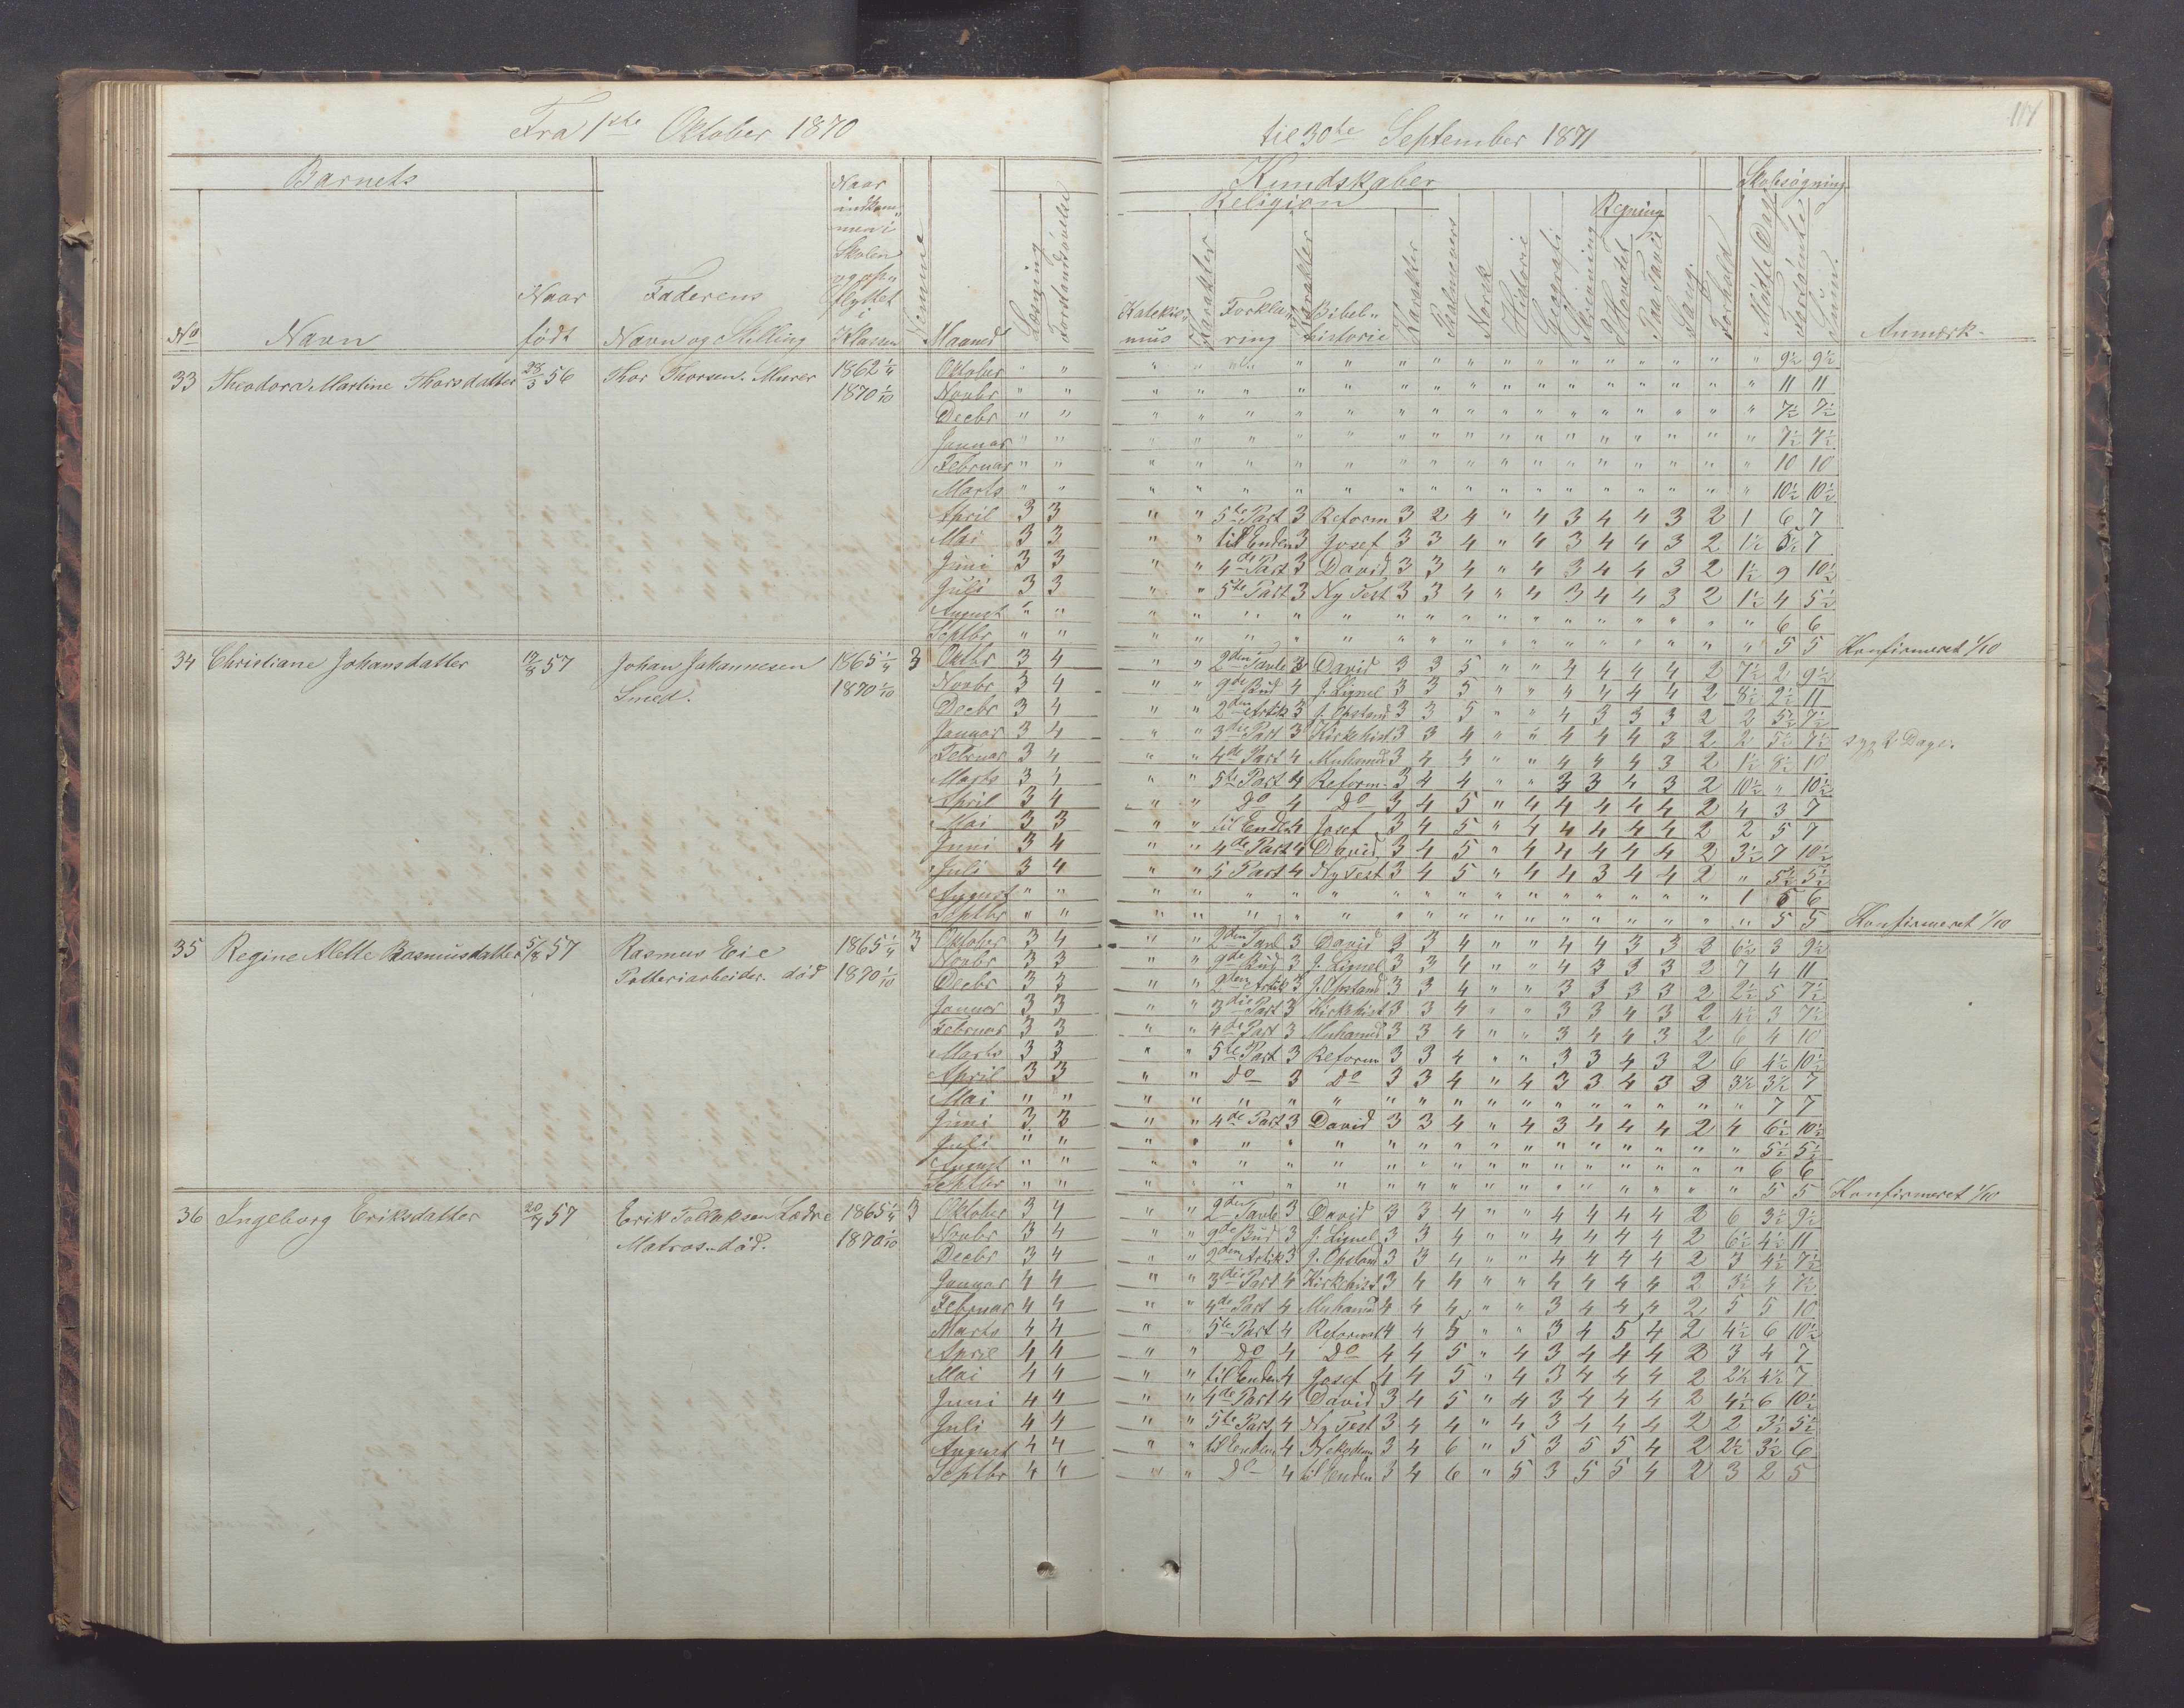 Fra 1ste Oktober 1870 til 30te September 1871
117
Barnets
Kundskaber
Skolesøgning
Religion
Regning
Naar indkommen i Skolen og opflyttet i Klassen
No Navn Naar født Faderens Navn og Stilling Nemme Maaned Læsning Forstandsøvelse
Katekismus Karakter Forklaring Karakter Bibelhistorie Karakter Psalmevers Norsk Historie Geografi Skrivning I Hovedet Paa Tavle Sang Forhold Mødte Dage Forsømte Sum. Anmærk.
33 Theodora Martine Thorsdatter 28/3 56 Thor Thorsen. Murer 1862 1/4 Oktober " " " " " " " " " " " " " " " " " " " 9½ 9½
1870 1/10 Novbr " " " " " " " " " " " " " " " " " " " 11 11
Decbr " " " " " " " " " " " " " " " " " " " 7½ 7½
Januar " " " " " " " " " " " " " " " " " " " 7½ 7½
Februar " " " " " " " " " " " " " " " " " " " 10 10
Marts " " " " " " " " " " " " " " " " " " " 10½ 10½
April 3 3 " " 5te Part 3 Reform 3 2 4 " 4 3 4 4 3 2 1 6 7
Mai 3 3 " " til Enden 3 Josef 3 3 4 " 4 3 4 4 3 2 1½ 5½ 7
Juni 3 3 " " 4de Part 3 David 3 3 4 " 4 3 4 4 3 2 1½ 9 10½
Juli 3 3 " " 5te Part 3 Ny Test 3 3 4 " 4 3 4 4 3 2 1½ 4 5½
August " " " " " " " " " " " " " " " " " " " 6 6
Septbr " " " " " " " " " " " " " " " " " " " 5 5 Konfirmeret 1/10
34 Christiane Johansdatter 17/8 57 Johan Johannesen 1865 1/4 3 Oktbr 3 4 " " 2den Tavle 3 David 3 3 5 " " 4 4 4 4 2 7½ 2 9½
Smed. 1870 1/10 Novbr 3 4 " " 9de Bud 4 J. Lignel 3 3 5 " " 4 4 4 4 2 8½ 2½ 11
Decbr 3 4 " " 2den Artik 3 J. Opstand 3 3 5 " " 4 3 3 3 2 2 5½ 7½
Januar 3 4 " " 3die Part 3 Kirkehist 3 3 4 " " 4 4 4 3 2 2 5½ 7½ syg 2 Dage.
Februar 3 4 " " 4de Part 4 Muhamed 3 4 4 " " 4 4 4 3 2 1½ 8½ 10
Marts 3 4 " " 5te Part 4 Reform. 3 4 4 " " 3 3 4 3 2 10½ " 10½
April 3 4 " " Do 4 Do 3 4 5 " 4 4 4 4 4 2 4 3 7
Mai 3 3 " " til Ende 4 Josef 3 4 5 " 4 4 4 4 4 2 2 5 7
Juni 3 4 " " 4de Part 4 David 3 4 5 " 4 4 4 4 4 2 3½ 7 10½
Juli 3 4 " " 5 Part 4 Ny Test 3 4 5 " 4 4 3 4 4 2 " 5½ 5½
August " " " " " " " " " " " " " " " " " " 1 5 6
Septbr " " " " " " " " " " " " " " " " " " " 5 5 Konfirmeret 1/10
35 Regine Alette Rasmusdatter 5/8 57 Rasmus Eie 1865 1/4 3 Oktober 3 4 " " 2den Tavl 3 David 3 3 4 " " 4 4 3 3 2 6½ 3 9½
Potteriarbeider. død 1870 1/10 Novbr 3 3 " " 9de Bud 3 J. Lignel 3 3 4 " " 4 3 3 3 2 7 4 11
Decbr 3 3 " " 2den Artik 3 J. Opstand 3 3 4 " " 3 3 3 3 2 2½ 5 7½
Januar 3 3 " " 3die Part 3 Kirkehist 3 3 4 " " 3 3 4 3 2 4½ 3 7½
Februar 3 3 " " 4de Part 3 Muhamed 3 3 4 " " 3 4 4 3 2 6 4 10
Marts 3 3 " " 5te Part 3 Reform 3 3 4 " " 3 3 4 3 2 6 4½ 10½
April 3 3 " " Do 3 Do 3 3 4 " 4 3 3 4 3 2 3½ 3½ 7
Mai " " " " " " " " " " " " " " " " " " " 7 7
Juni 3 3 " " 4de Part 3 David 3 3 4 " 4 3 4 4 4 2 4 6½ 10½
Juli " " " " " " " " " " " " " " " " " " " 5½ 5½
August " " " " " " " " " " " " " " " " " " " 6 6
Septbr " " " " " " " " " " " " " " " " " " " 5 5 Konfirmeret 1/10
36 Ingeborg Eriksdatter 20/7 57 Erik 1865 1/4 3 Oktober 3 4 " " 2den Tavle 3 David 3 3 4 " " 4 4 4 4 2 6 3½ 9½
Matros. død. 1870 1/10 Novbr 3 4 " " 9de Bud 3 J. Lignel 3 3 4 " " 4 4 4 4 2 6½ 4½ 11
Decbr 3 4 " " 2den Artik 3 J. Opstand 3 3 4 " " 4 4 4 4 2 3 4½ 7½
Januar 4 4 " " 3die Part 4 Kirkehist 3 4 4 " " 4 4 4 4 2 3½ 4 7½
Februar 4 4 " " 4de Part 4 Muhamed 4 4 4 " " 3 4 4 4 2 5 5 10
Marts 4 4 " " 5te Part 4 Reformat 4 4 5 " " 3 4 5 4 2 4½ 6 10½
April 4 4 " " Do 4 Do 4 4 5 " 4 3 4 4 4 2 3 4 7
Mai 4 4 " " til Enden 4 Josef 4 4 5 " 4 3 4 4 4 2 2½ 4½ 7
Juni 4 4 " " 4de Part 4 David 3 4 5 " 4 3 4 4 4 2 4½ 6 10½
Juli 4 4 " " 5te Part 4 Ny Test 3 4 4 " 4 3 4 4 4 2 2 3½ 5½
August 4 4 " " til Enden 4 Nekodem 3 4 6 " 5 3 5 5 4 2 2½ 3½ 6
Septbr 4 4 " " Do 4 til Enden 3 4 6 " 5 3 5 5 4 2 3 2 5